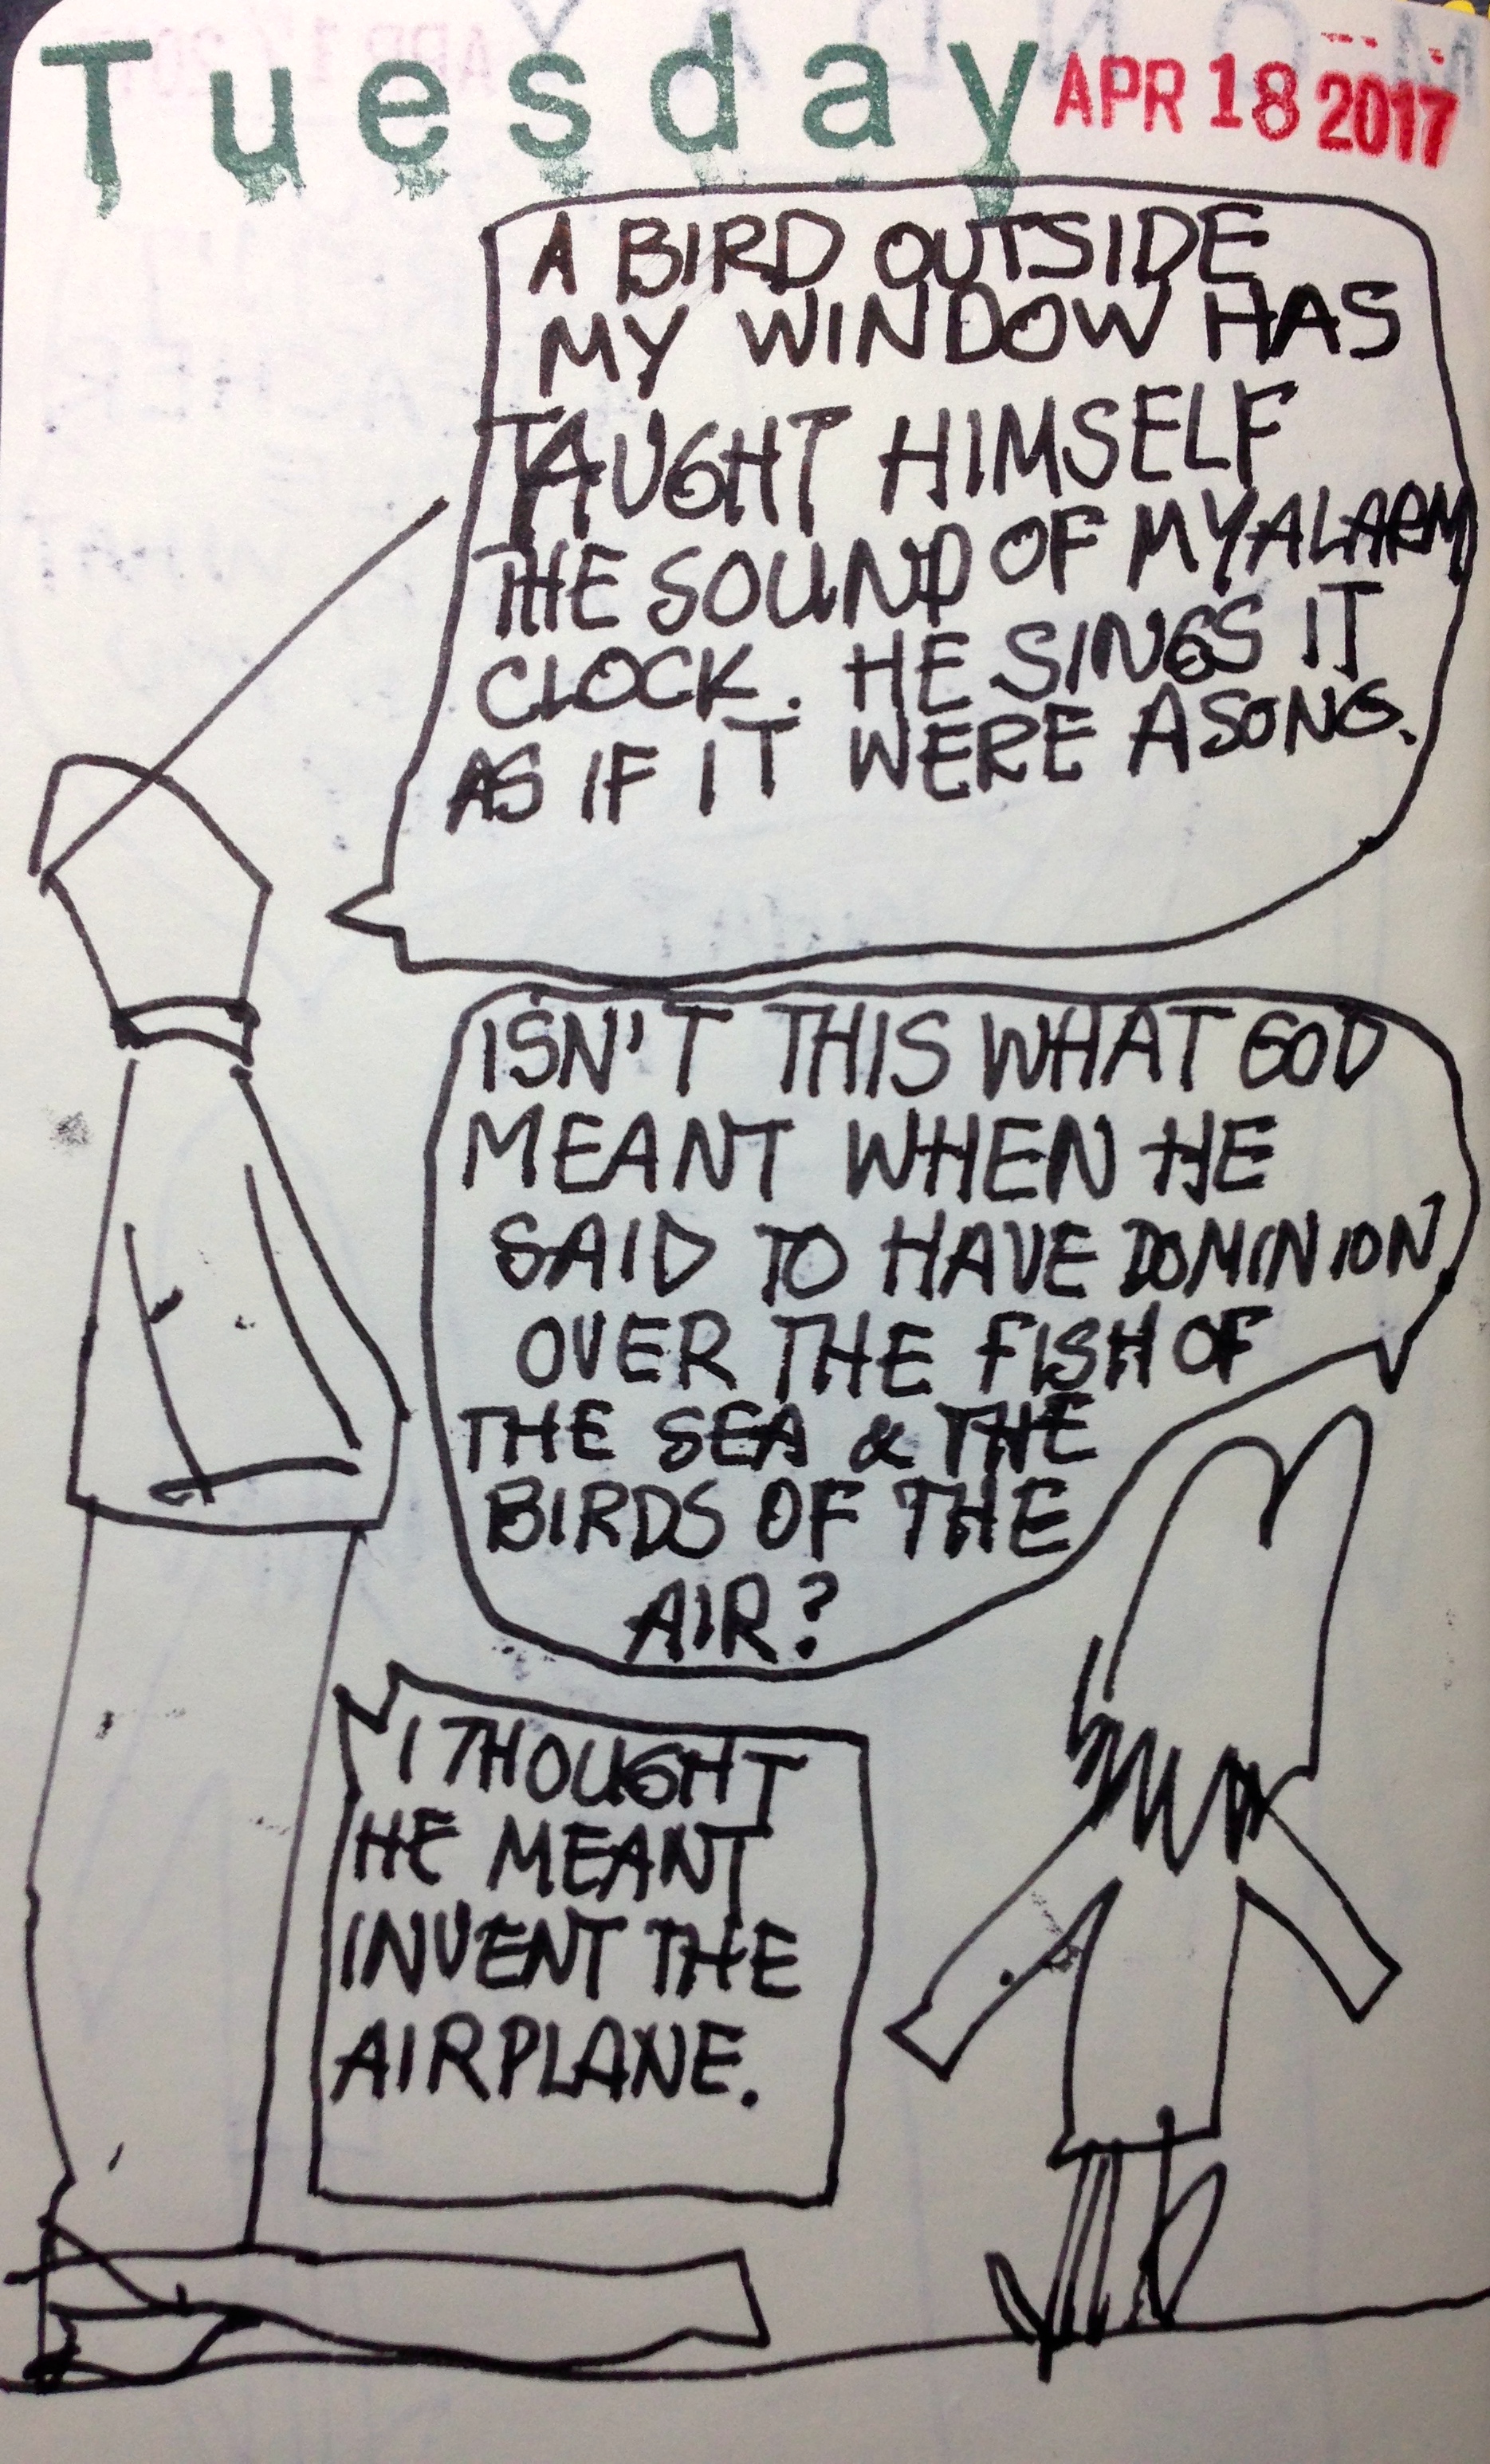 Tuesday APR 18 2017
A BIRD OUTSIDE
MY WINDOW HAS
TAUGHT HIMSELF
THE SOUND OF MY ALARM
CLOCK. HE SINGS IT
AS IF IT WERE A SONG.
ISN'T THIS WHAT GOD
MEANT WHEN HE
SAID TO HAVE DOMINION
OVER THE FISH OF
THE SEA & THE
BIRDS OF THE
AIR?
I THOUGHT
HE MEANT
INVENT THE
AIRPLANE.